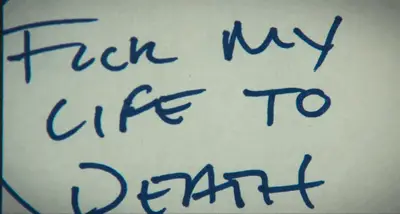 FUCK MY
LIFE TO
DEATH